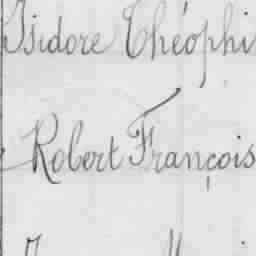 Isidore Théophi
Robert François